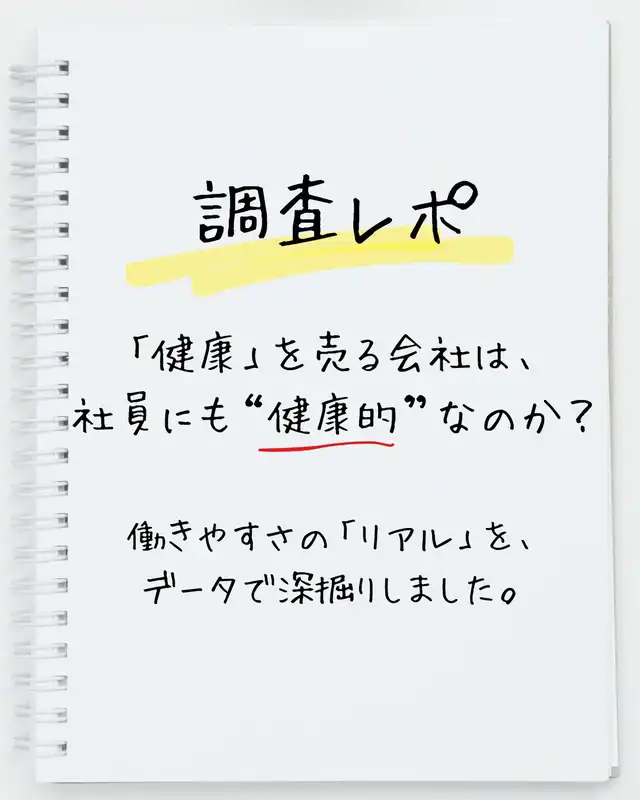 調査レポ
「健康」を売る会社は、
社員にも“健康的”なのか？
働きやすさの「リアル」を、
データで深掘りしました。